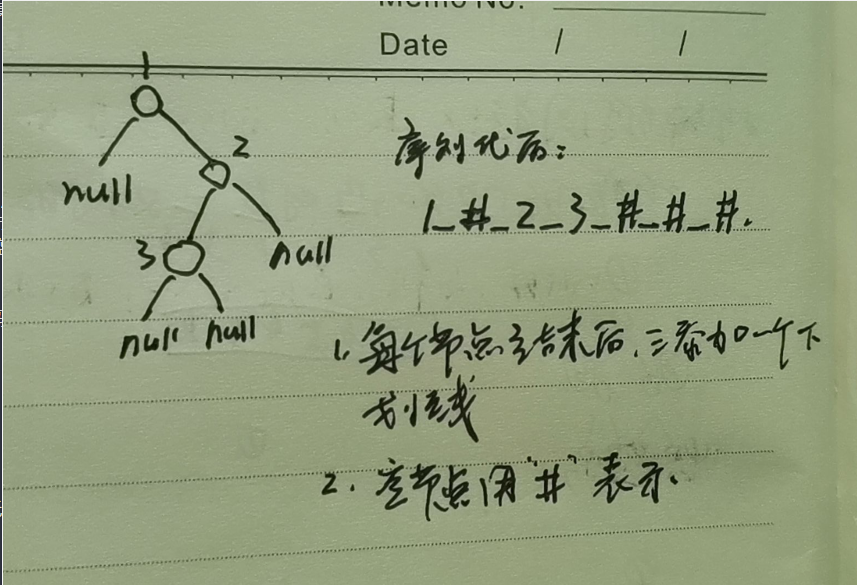 Memo No.
Date / /
1
2
null
3
null
null null
序列化后:
1_#_2_3_#_#_#.
1. 每个节点结束后,添加一个下
划线
2. 空节点用"#"表示.